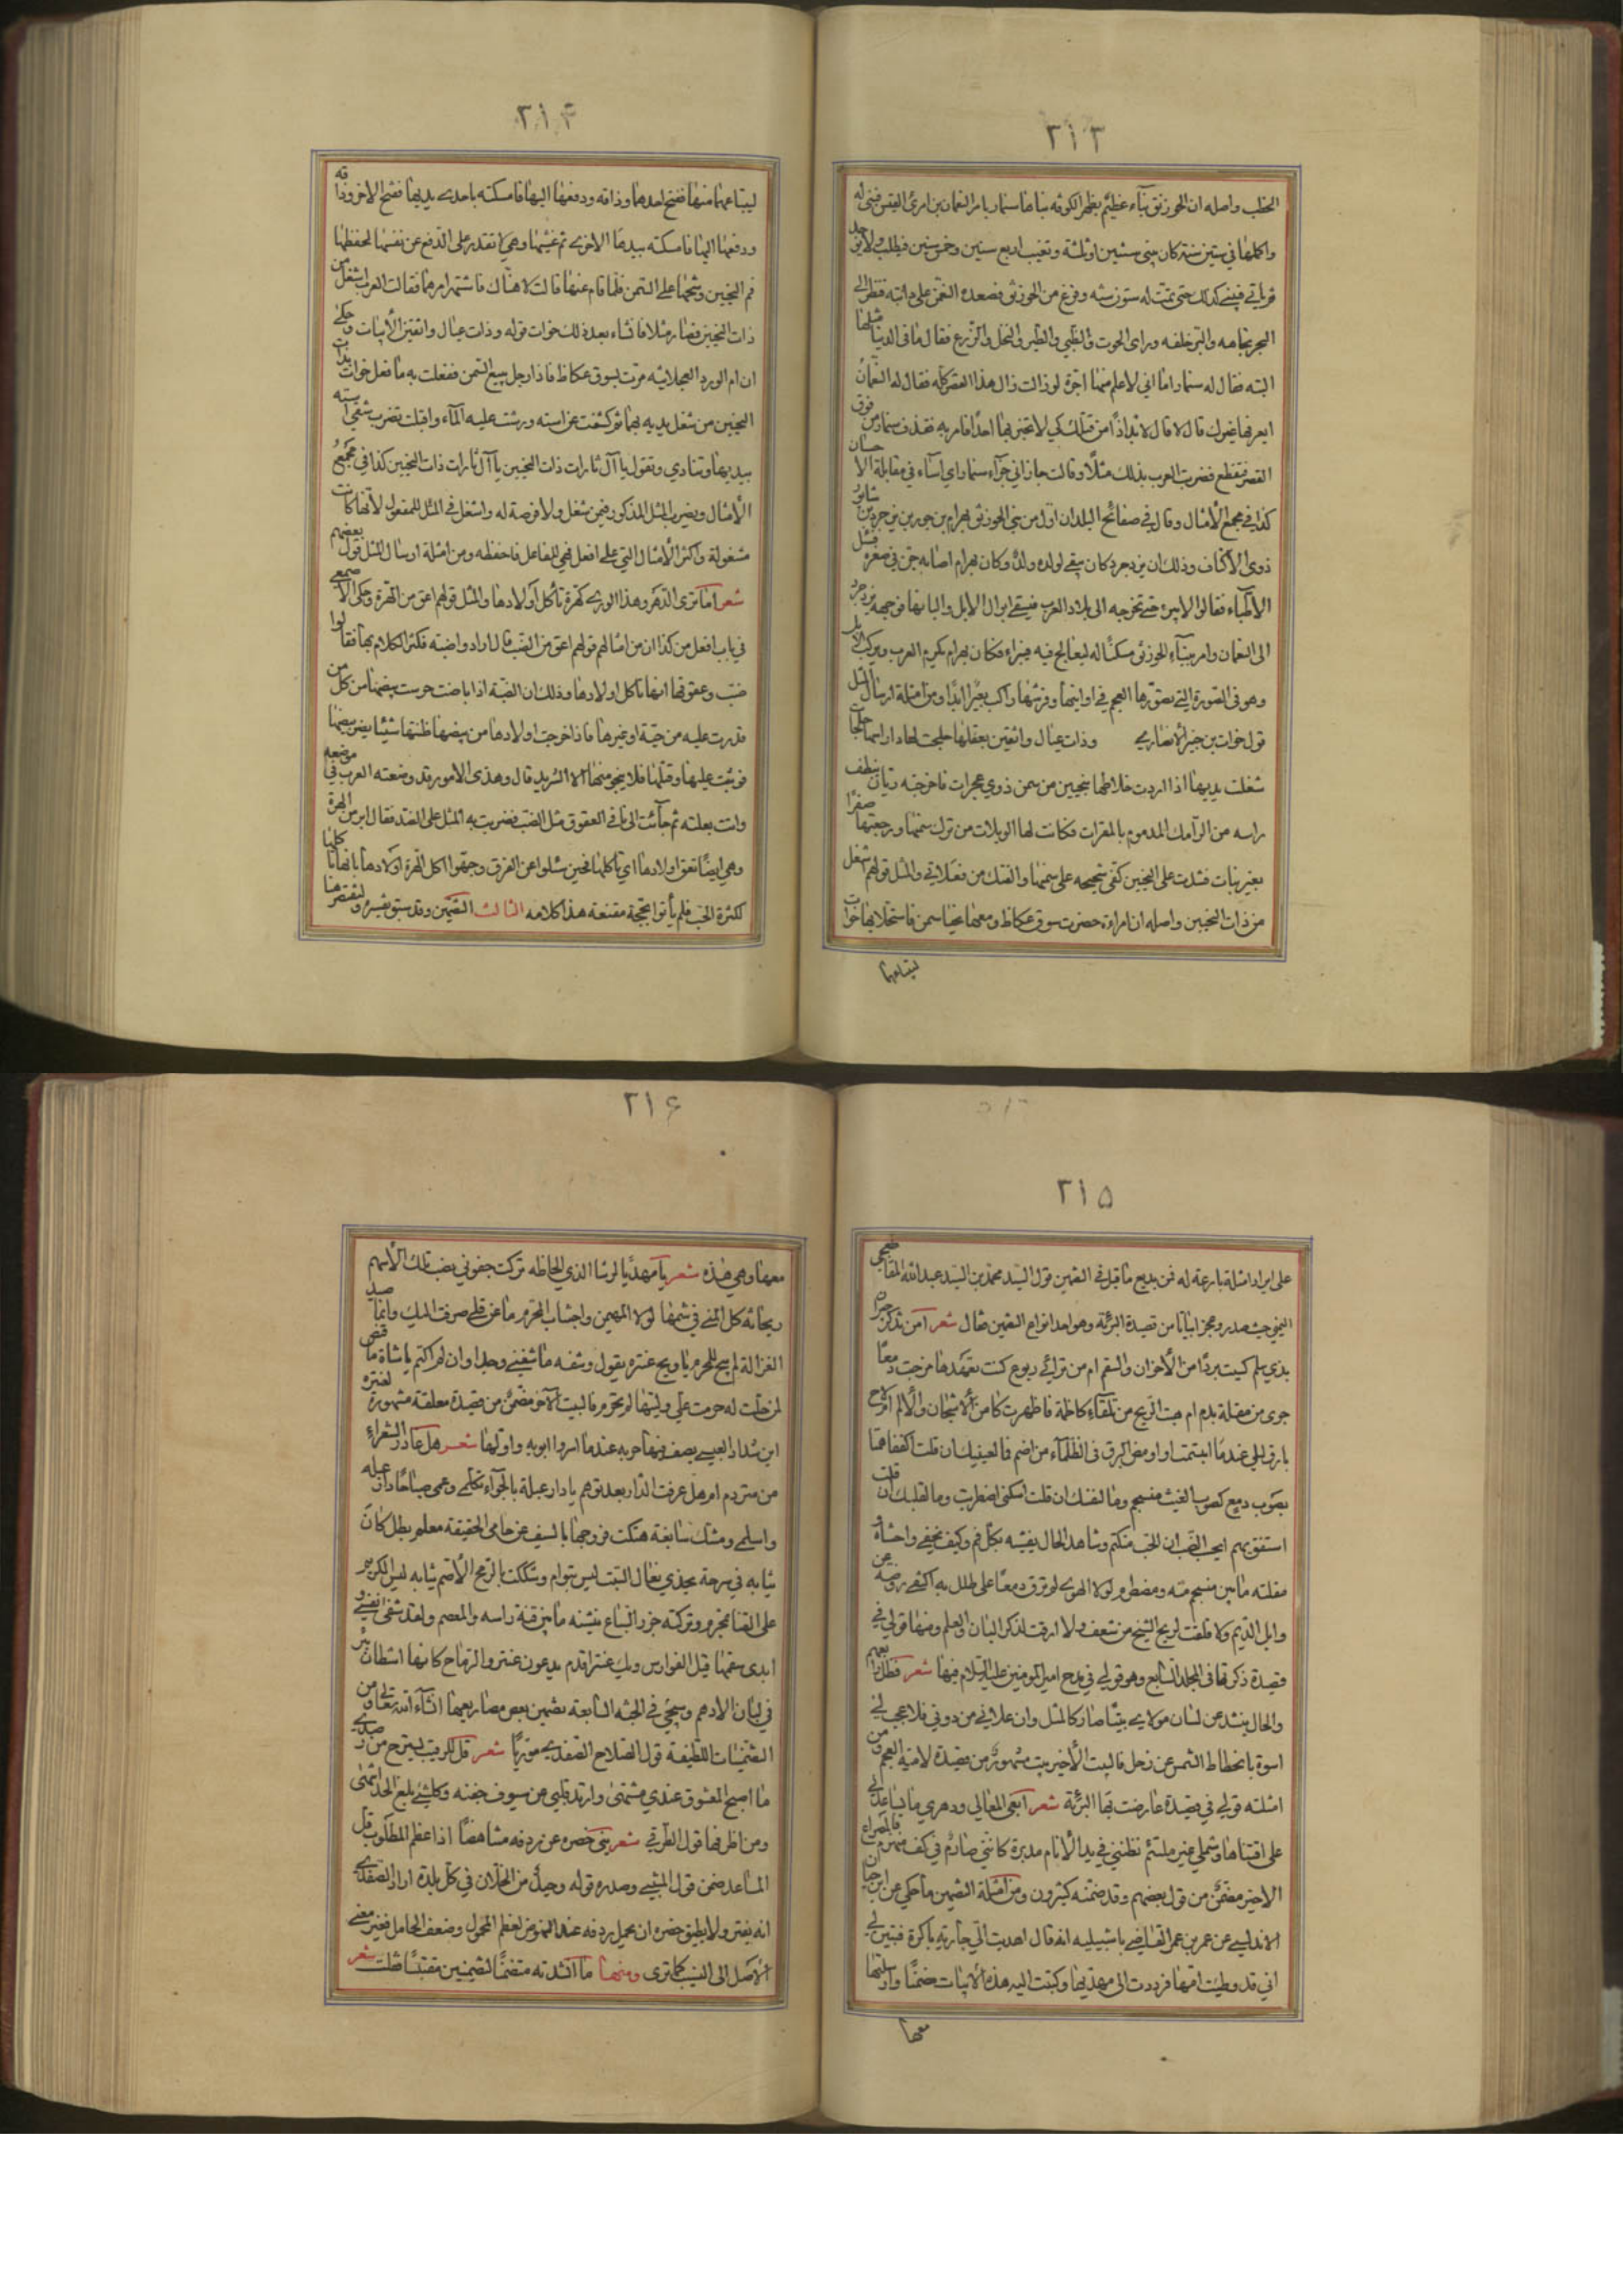 ٢١٣
الخطب واصله ان الخورنق بناء عظيم بظهر الكوفه بناها سنمار بامر النعمان بن امرئ القيس فبنى له
واكملها في ستين سنة كان يبنى سنتين او ثلثة ويغيب اربع سنين وخمس سنين فيطلب ولا يوجد
فياتي فيبنى كذلك حتى تمت له ستون سنه وفرغ من الخورنق فصعده النعمن على دابته فنظر الى
البحر تجاهه والبر خلفه وراى الحوت والظبي والطير والنخل والزرع فقال ما في الدنيا مثلها
البته فقال له سنمار اما اني لاعلم منها اجرة لو زالت زال هذا القصر كله فقال له النعمان
ايعرفها غيرك قال لا قال لا بد اذا من قتلك كي لا تخبر بها احدا فامر به فقذف سنمار من فوق
القصر فتقطع فضربت العرب بذلك مثلا وقالت جازاني جزاء سنمار اي اساء في مقابلة الاحسان
كذا في مجمع الامثال وقال في صفائح البلدان اول من بنى الخورنق بهرام بن جور بن يزجرد بن شابور
ذوى الاكتاف وذلك ان يزدجرد كان يبقى لولده ولد وكان بهرام اصابه جن في صغره فسئل
الاطباء فقالوا لا يبرء حتى تخرجه الى بلاد العرب فيسقى ابوال الابل والبانها فوجهه يزدجرد
الى النعمان وامر ببناء الخورنق مسكنا له ليعالج فيه فبراء فكان بهرام يكرم العرب ويركب الابل
وهو في الصورة التي يصورها العجم في اوانيها وفرشها راكب بعيرا ابدا ومن امثلة ارسال المثل
قول خوات بن جبير الانصاري وذات عيال واثقين بعقلها خلجت لها جار استها خلجات
شغلت يديها اذا اردت خلاطها بنحيين من سمن ذوي عجرات فاخرجته ريان ينطف
راسه من الرامك المدموم بالمقرات فكانت لها الويلات من ترك سمنها ورجعتها صفرا
بغير بتات فشدت على النحيين كفى شحيحه على سمنها والفتك من فعلاتي والمثل قولهم اشغل
من ذات النحيين واصله ان امراءة حضرت سوق عكاظ ومعها نحيا سمن فاستخلا بها خوات
ليبتاعهما
٢١۴
ليبتاعهما منها ففتح احدهما وذاقه ودفعها اليها فامسكته باحدى يديها ففتح الاخر وذاقه
ودفعها اليها فامسكته بيدها الاخرى ثم غشيها وهي لا تقدر على الدفع عن نفسها لحفظها
فم النحيين وشحها على السمن فلما قام عنها قالت لا هناك فاشتهر امرهما فقالت العرب اشغل من
ذات النحيين فصار مثلا فانشاء بعد ذلك خوات قوله وذات عيال واثقين الابيات وحكى
ان ام الورد العجلانيه مرت بسوق عكاظ فاذا رجل يبيع السمن ففعلت به ما فعل خوات بذات
النحيين من شغل يديه بهما ثم كشفت عن استه ورشت عليه الماء واقبلت تضرب شقى استه
بيديها وتنادي وتقول يا آل ثارات ذات النحيين يا آل ثارات ذات النحيين كذا في مجمع
الامثال ويضرب المثل المذكور فيمن شغل ولا فرصة له واشغل في المثل للمفعول لانها كانت
مشغولة واكثر الامثال التي على افعل فهي للفاعل فاحفظه ومن امثلة ارسال المثل قول بعضهم
شعر اما ترى الدهر وهذا الورى كهرة تأكل اولادها والمثل قولهم اعق من الهرة وحكى الاصمعي
في باب افعل من كذا ان من امثالهم قولهم اعق من الضب قال ارادوا ضبة فكثر الكلام بها فقالوا
ضب وعقوقها انها تاكل اولادها وذلك ان الضبة اذا باضت حرست بيضها من كل من
قدرت عليه من حية او غيرها فاذا خرجت اولادها من بيضها ظنتها شيئا يضر بيضها
فوثبت عليها وقتلها فلا ينجو منها الا الشريد قال وهذى الامور قد وضعته العرب في موضعه
واتت بعلته ثم جائت الى ما في العقوق مثل الضب فضربت به المثل على الضد فقال ابر من الهرة
وهي ايضا تعق اولادها اي تأكلها فحين سئلوا عن الفرق وجهوا اكل الهرة اولادها بانها تأكلها
لكثرة الحب فلم يأتوا بحجة مقنعة هذا كلامه الثالث التضمين وقد سبق تفسيره ولنقتصر هنا
٢١۵
على ايراد امثلة بارعة له فمن بديع ما قيل في التضمين قول السيد محمد بن السيد عبد الله القاضي
اليمني حيث صدر وعجز ابياتا من قصيدة البرئة وهو احد انواع التضمين فقال شعر امن تذكر جيران
بذي سلم كسيت بردا من الاحزان والسقم ام من ترائي ربوع كنت تعهدها مزجت دمعا
جرى من مقلة بدم ام هبت الريح من تلقاء كاظمة فاظهرت كامن الاشجان والالم ام لاح
بارق ليلى عندما ابتسمت او اومض البرق في الظلماء من اضم فما لعينيك ان قلت اكففا همتا
بصوب دمع كصوب الغيث منسجم وما لقلبك ان قلت اسكن اضطربت وما لقلبك ان قلت
استفق يهم ايحسب الصب ان الحب منكتم وشاهد الحال يفشيه بكل فم وكيف يخفى واحشاء
مقلته ما بين منسجم منه ومضطرم لولا الهوى لم ترق دمعا على طلل به اكتفى روضه عن
وابل الديم ولا طلقت لريح الشيخ من شغف ولا ارقت لذكر البان والعلم ومنها قولي في
قصيدة ذكرتها في المجلد السابع وهو قولي في مدح امير المومنين عليه السلام فيها شعر فظل
والحال ينشد عن لسان مولاى بيتا صار كالمثل وان علاني من دوني فلا عجب لي
اسوة بانحطاط الشمس عن زحل فالبيت الاخير بيت مشهور من قصيدة لامية العجم ومن
امثلته قولي في قصيدة عارضت بها البرئة شعر ابغي المعالي ودهري ما يساعدني
على اقتناها وشملي غير ملتئم تظنني في يد الايام مدبرة كانني صارم في كف منهزم
الاخير مضمن من قول بعضهم وقد ضمنه كثيرون ومن امثلة التضمين ما حكي عن ابن حيان
الاندلسي عن عمر بن عمر القاضي باشبيليه انه قال اهديت الي جارية باكرة فتبين لي
اني قد وطيت امها فرددت الى مهديها وكتبت اليه هذه الابيات ضمنا وارسلتها
معها
٢١۶
معها وهي هذه شعر يا مهديا لرشا الذي الحاظه تركت جفوني نصب تلك الاسهم
ريحانة كل المنى في شمها لولا المهيمن واجتناب المحرم ما عن قلى صرفت اليك وانما صيد
الغزالة لم يبح للمحرم يا ويح عنترة يقول وشفه ما شفني وجدا وان لم اكتم يا شاة ما قنص
لمن حلت له حرمت علي وليتها لم تحرم فالبيت الاخر مضمن من قصيدة معلقة مشهورة لعنتره
ابن شداد العبسي يصف فيها حربه عندما اسروا ابويه واولها شعر هل غادر الشعراء
من متردم ام هل عرفت الدار بعد توهم يا دار عبلة بالجواء تكلمي وعمى صباحا دار عبله
واسلمي ومشك سابغة هتكت فروجها بالسيف عن حامي الحقيقة معلم بطل كان
ثيابه في سرحة يحذي نعال السبت ليس بتوام وشككت بالرمح الاصم ثيابه ليس الكريم
على القنا بمحرم وتركته جزر السباع ينشنه ما بين قنة راسه والمعصم ولقد شفى نفسي و
ابرى سقمها قيل الفوارس ويك عنتر اقدم يدعون عنتر والرماح كانها اشطان بئر
في لبان الادهم وسيجئ في الجثه السابعة تضمين بعض مصاريعها انشاء الله تعالى ومن
التضمينات اللطيفة قول الصلاح الصفدي موريا شعر قل للرقيب يسترح من رصدي
ما اصبح المعشوق عندي مشتهى وارتد قلبي عن سيوف جفنه وكل شئ بلغ الحد انتهى
ومن اظرفها قول الطرقي شعر بنى خصره عن ردفه متناهضا اذا عظم المطلوب قل
المساعد ضمن قول المتنبي وصدره قوله وحيد من الخلان في كل بلدة اراد الصفدي
انه يفتر ولا يطيق خصره ان يحمل ردفه عند النهوض لعظم المحمول وضعف الحامل فغير معنى
الاصل الى النسيب كما ترى ومنها ما انشدته متضمنا لتضمينين مقتبسا فقلت شعر